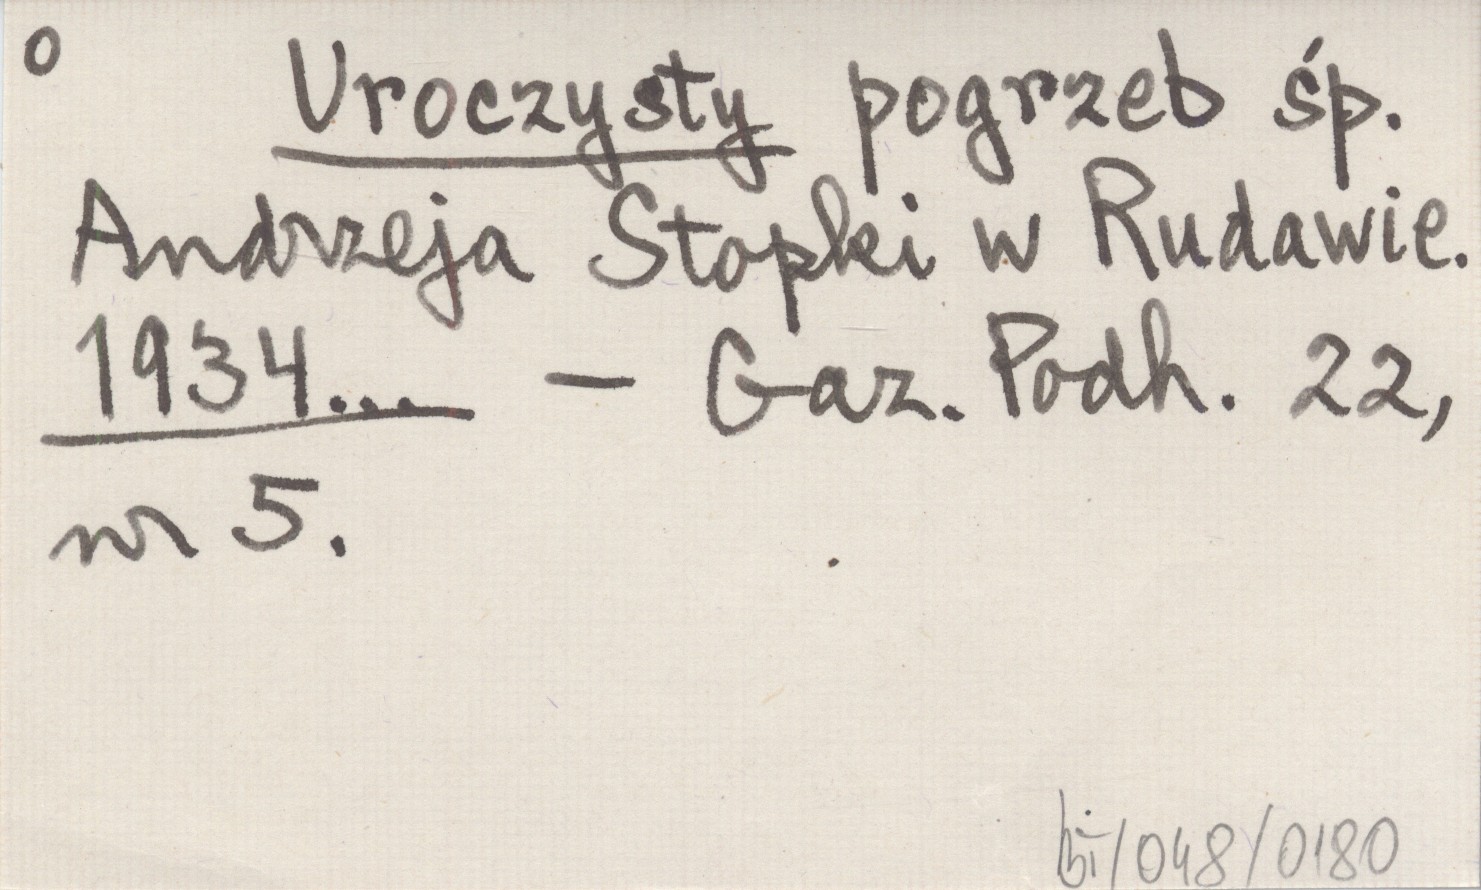 o
Uroczysty pogrzeb śp.
Andrzeja Stopki w Rudawie.
1934... – Gaz. Podh. 22,
nr 5.
/048/0180